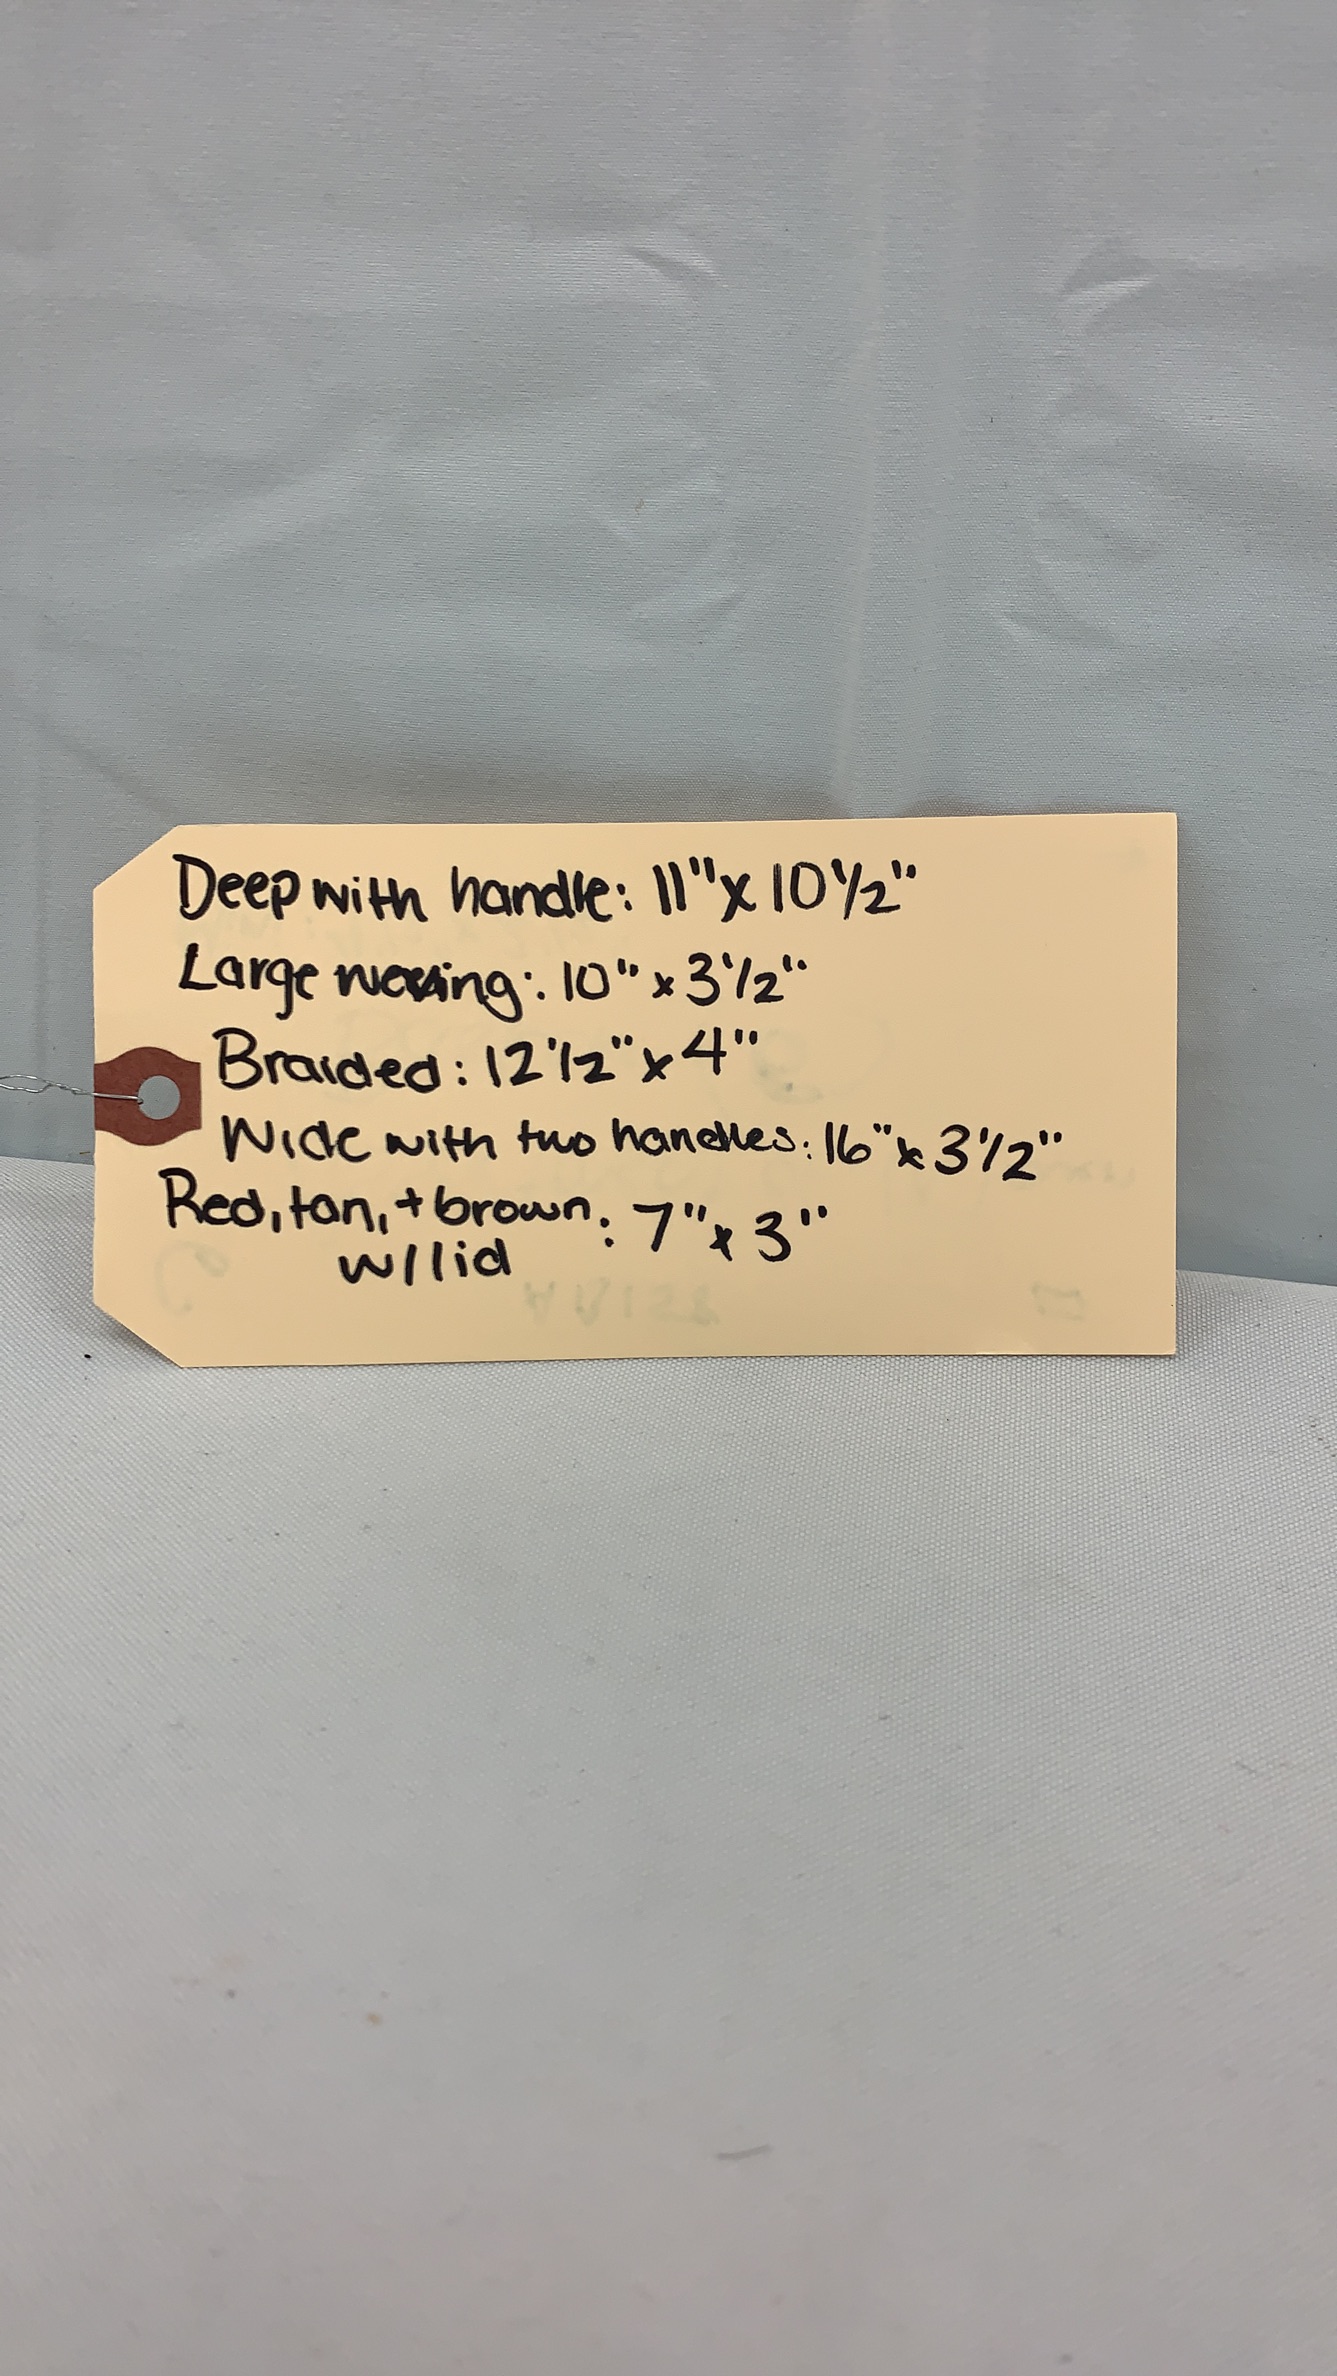 Deep with handle: 11" x 10 1/2"
Large weaving: 10" x 3 1/2"
Braided: 12 1/2" x 4"
Wide with two handles: 16" x 3 1/2"
Red, tan, + brown: 7" x 3"
w/ lid